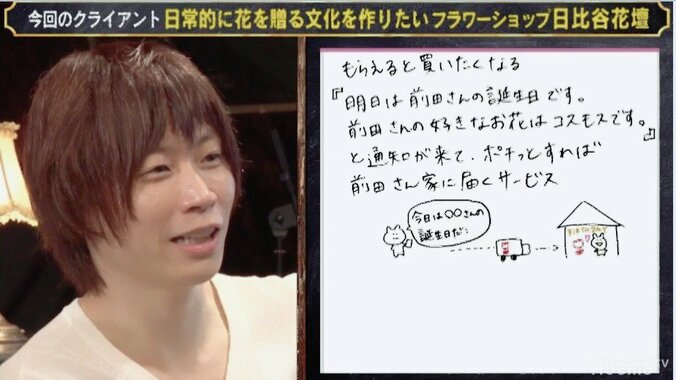 今回のクライアント 日常的に花を贈る文化を作りたい フラワーショップ日比谷花壇
もらえると買いたくなる
『明日は前田さんの誕生日です。
前田さんの好きなお花はコスモスです。』
と通知が来て、ポチっとすれば
前田さん家に届くサービス
今日は〇〇さんの
誕生日だ!